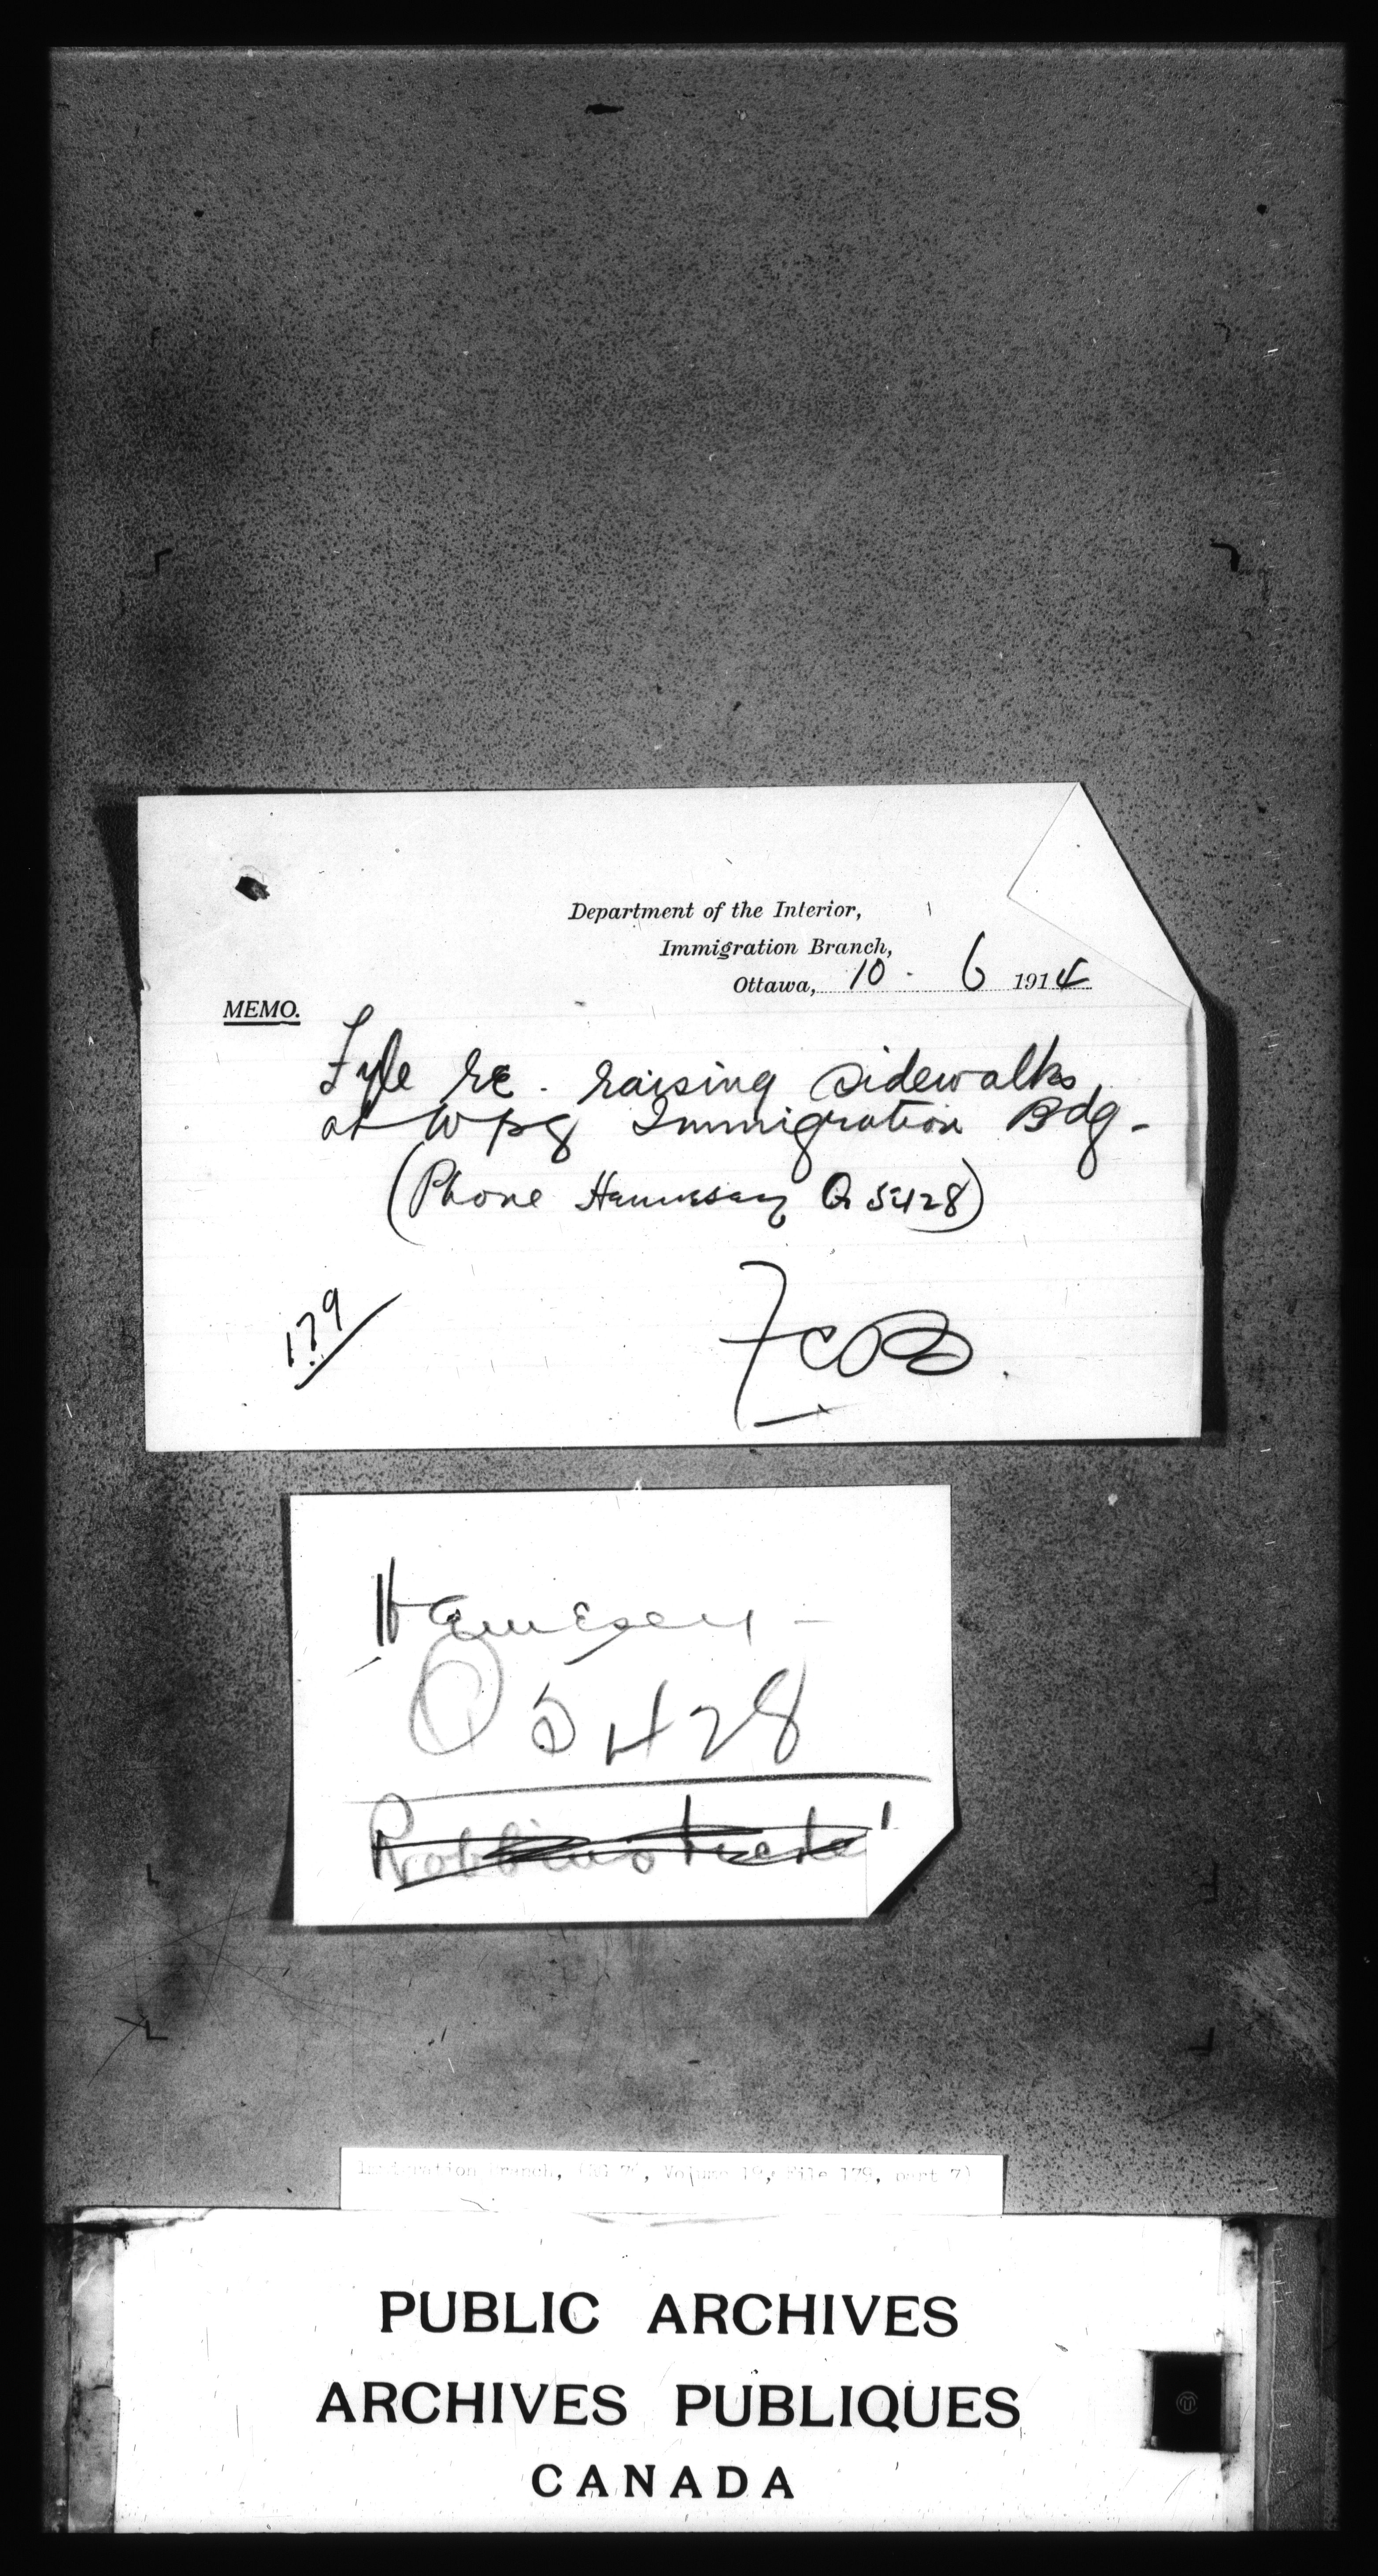 Department of the Interior,
Immigration Branch,
Ottawa, 10 - 6 1914
MEMO.
Fyle re. raising sidewalks
at Wpg Immigration Bdg -
(Phone Hennessey Q 5428)
179
Hennessey -
Q 5428
Immigration Branch, (RG 76, Volume 19, File 179, part 7)
PUBLIC ARCHIVES
ARCHIVES PUBLIQUES
CANADA